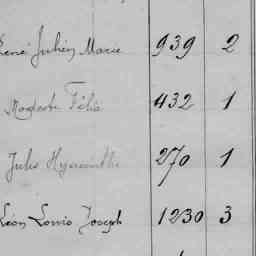 René Julien Marie 939 2
Modeste Félix 432 1
Jules Hyacinthe 270 1
Léon Louis Joseph 1230 3